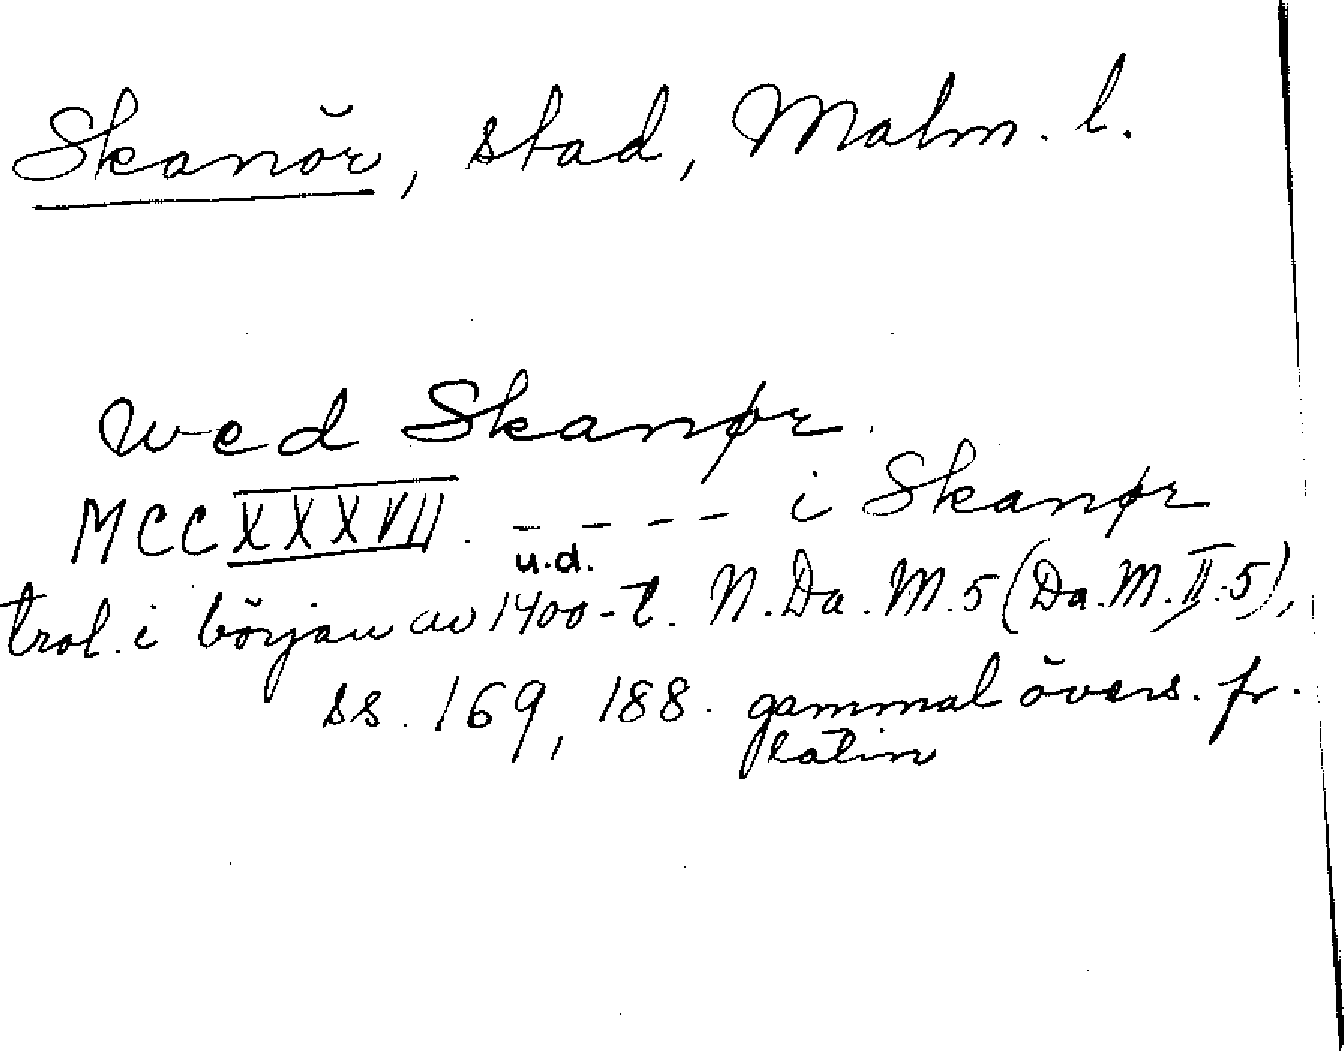 Skanör, stad, Malm. l.
wed Skanør.
MCCXXXVII. - - - - i Skanør
u.d.
trol. i början av 1400-t. N. Da. M. 5 (Da. M. II. 5),
ss. 169, 188. gammal övers. fr.
latin